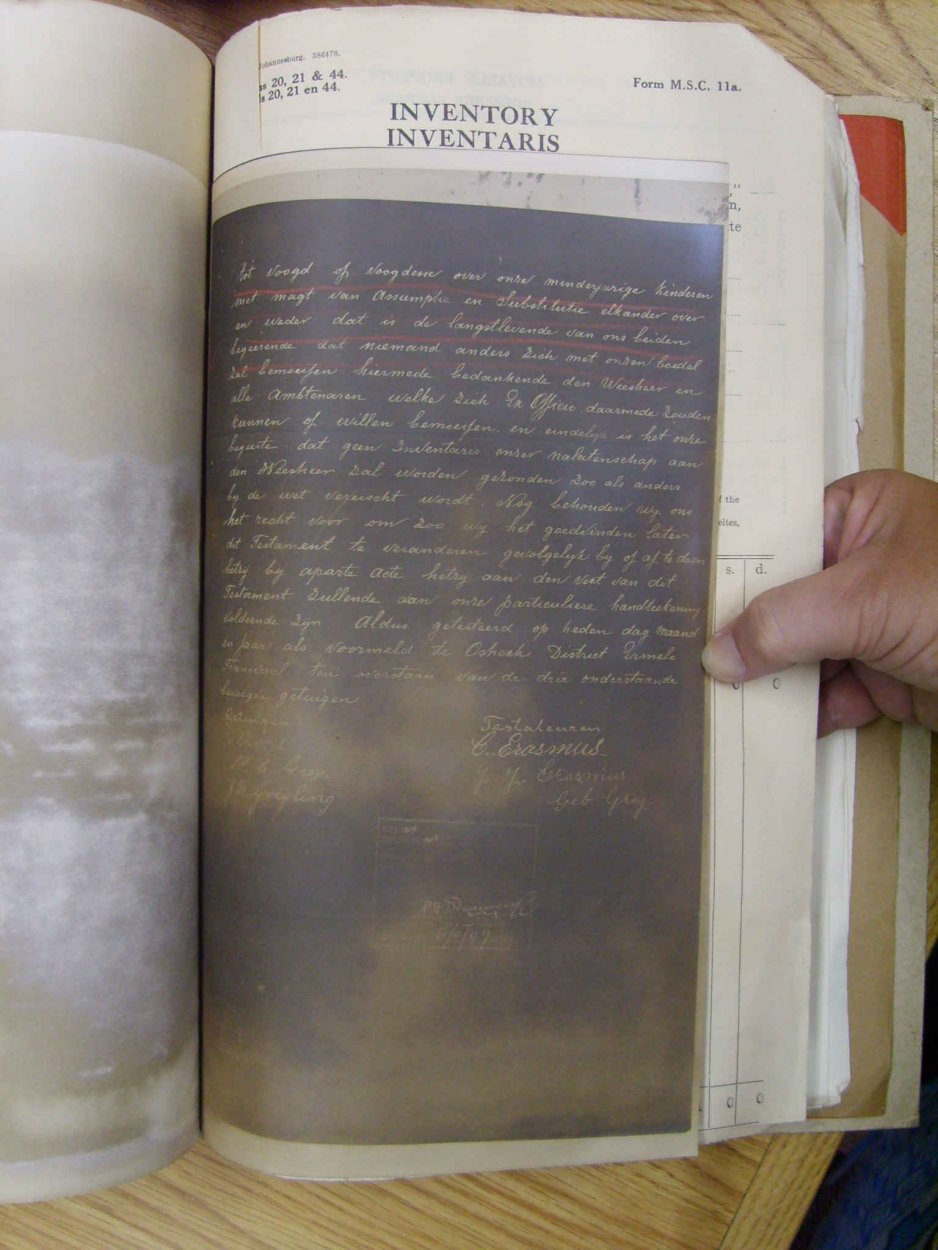 Johannesburg. 386478.
s 20, 21 & 44.
s 20, 21 en 44.
Form M.S.C. 11a.
INVENTORY
INVENTARIS
”
n,
te
Tot Voogd of Voogdesse over onze minderjarige Kinderen
met magt van Assumptie en Substitutie elkander over
en weder dat is de langstlevende van ons beiden
begeerende dat niemand anders zich met onzen boedel
zal bemoeijen hiermede bedankende den Weesheer en
alle Ambtenaren welke zich Ex Officio daarmede zouden
kunnen of willen bemoeijen en eindelijk is het onze
begeerte dat geen Inventaris onzer nalatenschap aan
den Weesheer zal worden gezonden zoo als anders
by de wet vereischt wordt. Nog behouden wy ons
het recht voor om zoo wy het goedvinden later
dit Testament te veranderen gevolgelyk by of af te doen
hetzy by aparte acte hetzy aan den voet van dit
Testament zullende aan onze particuliere handteekening
voldoende zyn Aldus getesteerd op heden dag maand
en jaar als voormeld te Oshoek District Ermelo
Transvaal ten overstaan van de drie onderstaande
getuigen
Getuigen
Testateuren
C. Erasmus
J. J. Erasmus
Geb Grey
f the
eltes,
s. d.
0 0
0 0